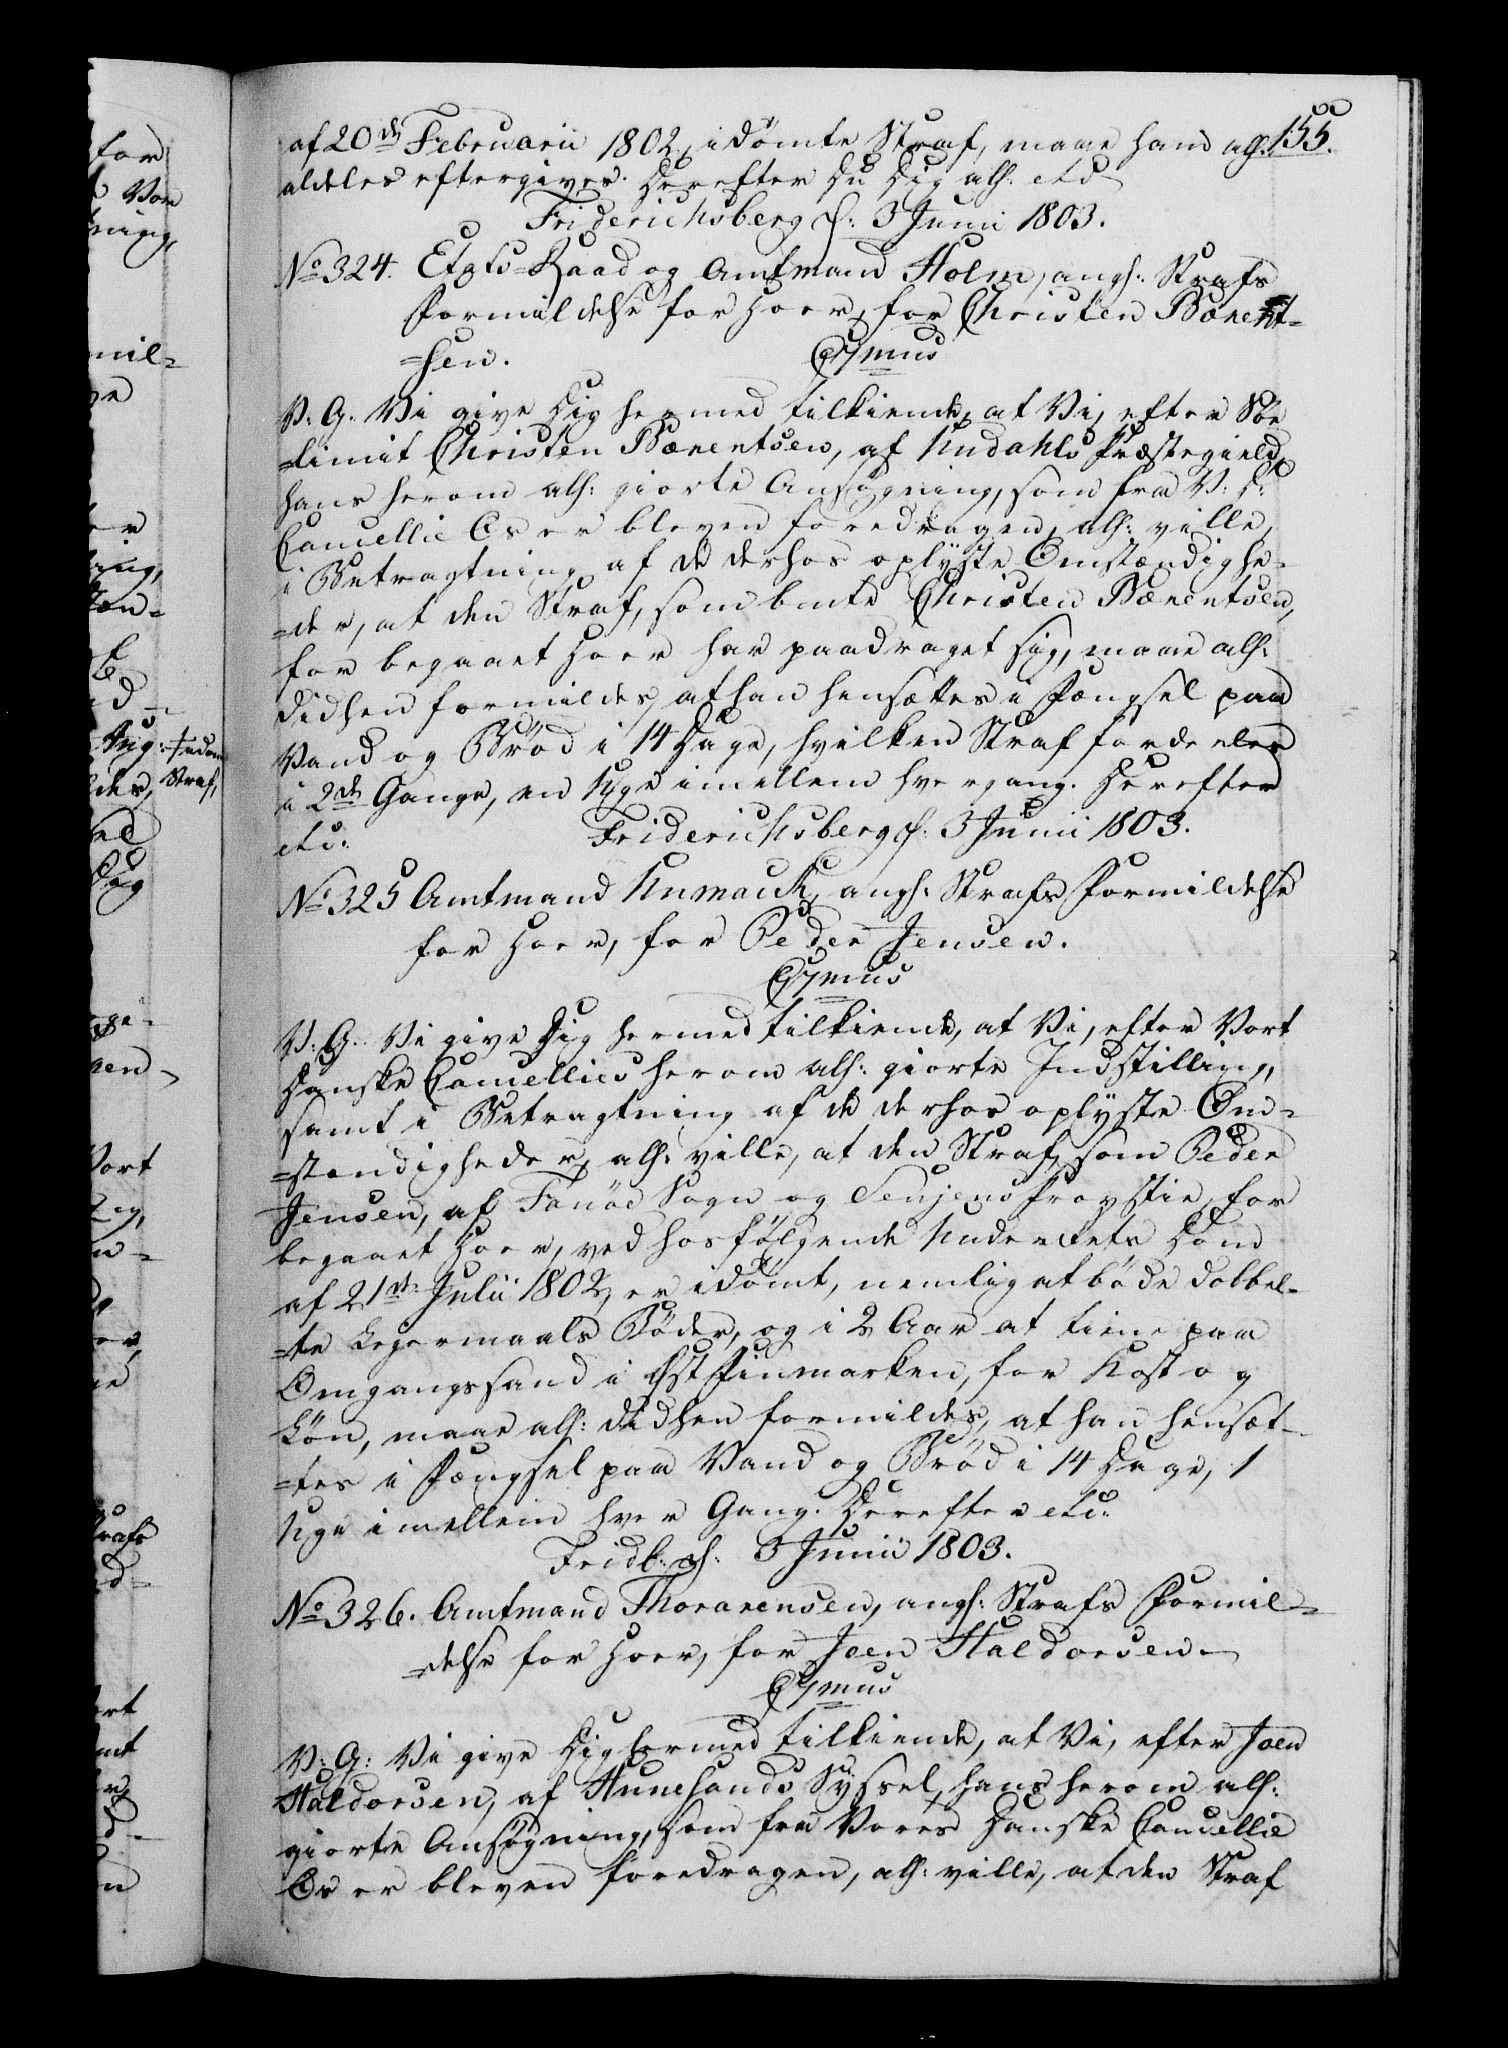 155.
af 20de Februarii 1802, idömte Straf, maae ham all:
aldeles eftergives. Derefter Du Dig all: etc
Friderichsberg d: 3 Junii 1803.
No 324. Etats-Raad og Amtmand Holm, angl: Strafs
Formildelse for Hoer, for Christen Bærent-
=sen. C7mus
V: G: Vi give Dig hermed tilkiende, at Vi, efter
=limit Christen Bærentsen, af Undahls Præstegield,
hans herom all: giorte Ansøgning, som fra V: D:
Cancellie Os er bleven foredragen, all: ville,
i Betragtning af de derhos oplyste Omstændighe-
=der, at den Straf, som bmte Christen Bærentsen,
for begaaet Hoer har paadraget sig, maae all:
didhen formildes, at han hensættes i Fængsel paa
Vand og Brød i 14 Dage, hvilken Straf fordeeles
i 2de Gange, en Uge imellem hver gang. Derefter
etc: Friderichsberg d: 3 Junii 1803.
No 325 Amtmand Knmauck, angl: Strafs Formildelse
for Hoer, for Peder Jensen.
C7mus
V: G: Vi give Dig hermed tilkiende, at Vi, efter Vort
Danske Cancellies herom all: giorte Indstilling,
samt i Betragtning af de derhos oplyste Om-
=stændigheder, all: ville, at den Straf, som Peder
Jensen, af Tanöe Sogn og Senjens Provstie, for
begaaet Hoer, ved hosfølgende Underrets Dom
af 21de Julii 1802, er idømt, nemlig at bøde dobbel-
=te Leyermaals Bøder, og i 2 Aar at tiene paa
Omgangssand i Øst Finmarken, for Kost og
Løn, maae all: didhen formildes, at han hensæt-
=tes i Fængsel paa Vand og Brød i 14 Dage, 1
Uge imellem hver Gang. Derefter etc:
Fridb: d: 3 Junii 1803.
No 326. Amtmand Thorarensen, angl: Strafs Formil-
=delse for Hoer, for Joen Haldorsen.
C7mus
V: G: Vi give Dig hermed tilkiende, at Vi, efter Joen
Haldorsen, af Hunesands Syssel, hans herom all:
giorte Ansøgning, som fra Vores Danske Cancellie
Os er bleven foredragen, all: ville, at den Straf